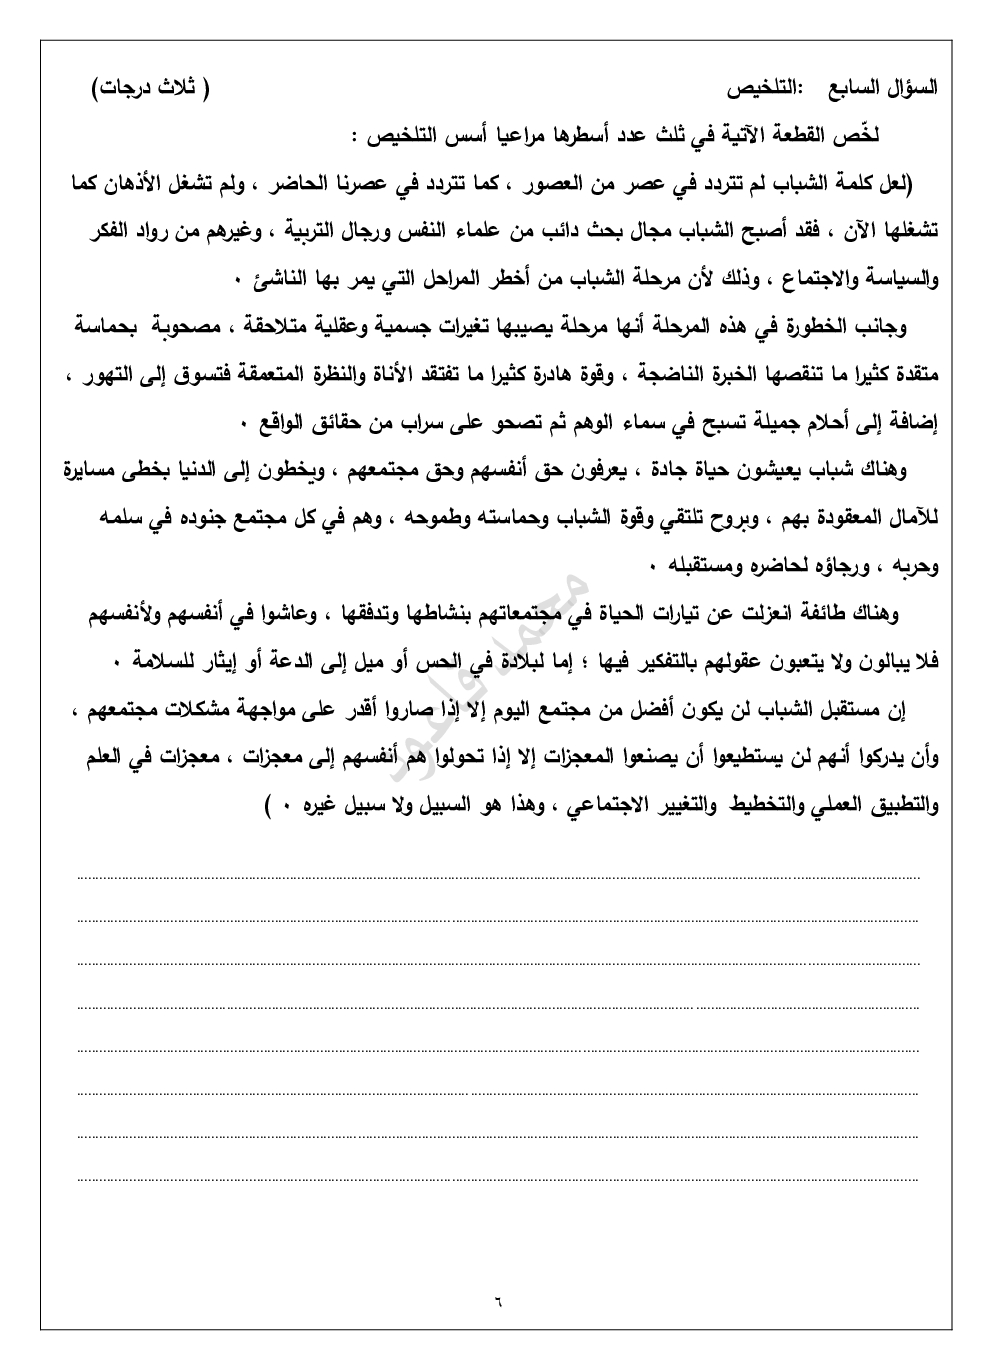 السؤال السابع :التلخيص ( ثلاث درجات)
لخّص القطعة الآتية في ثلث عدد أسطرها مراعيا أسس التلخيص :
(لعل كلمة الشباب لم تتردد في عصر من العصور ، كما تتردد في عصرنا الحاضر ، ولم تشغل الأذهان كما
تشغلها الآن ، فقد أصبح الشباب مجال بحث دائب من علماء النفس ورجال التربية ، وغيرهم من رواد الفكر
والسياسة والاجتماع ، وذلك لأن مرحلة الشباب من أخطر المراحل التي يمر بها الناشئ ٠
وجانب الخطورة في هذه المرحلة أنها مرحلة يصيبها تغيرات جسمية وعقلية متلاحقة ، مصحوبة بحماسة
متقدة كثيرا ما تنقصها الخبرة الناضجة ، وقوة هادرة كثيرا ما تفتقد الأناة والنظرة المتعمقة فتسوق إلى التهور ،
إضافة إلى أحلام جميلة تسبح في سماء الوهم ثم تصحو على سراب من حقائق الواقع ٠
وهناك شباب يعيشون حياة جادة ، يعرفون حق أنفسهم وحق مجتمعهم ، ويخطون إلى الدنيا بخطى مسايرة
للآمال المعقودة بهم ، وبروح تلتقي وقوة الشباب وحماسته وطموحه ، وهم في كل مجتمع جنوده في سلمه
وحربه ، ورجاؤه لحاضره ومستقبله ٠
وهناك طائفة انعزلت عن تيارات الحياة في مجتمعاتهم بنشاطها وتدفقها ، وعاشوا في أنفسهم ولأنفسهم
فلا يبالون ولا يتعبون عقولهم بالتفكير فيها ؛ إما لبلادة في الحس أو ميل إلى الدعة أو إيثار للسلامة ٠
إن مستقبل الشباب لن يكون أفضل من مجتمع اليوم إلا إذا صاروا أقدر على مواجهة مشكلات مجتمعهم ،
وأن يدركوا أنهم لن يستطيعوا أن يصنعوا المعجزات إلا إذا تحولوا هم أنفسهم إلى معجزات ، معجزات في العلم
والتطبيق العملي والتخطيط والتغيير الاجتماعي ، وهذا هو السبيل ولا سبيل غيره ٠ )
٦